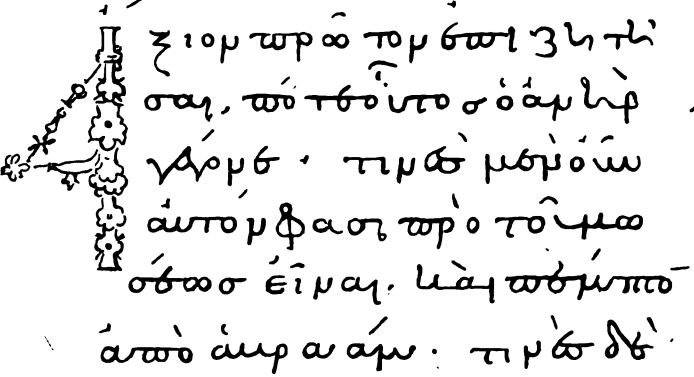 Ἄξιον πρῶτον ἐπιζητῆ
σαι, πότε οὗτος ὁ ἀνὴρ
γέγονε· τινὲς μὲν οὖν
αὐτόν φασι πρὸ τοῦ μω
σέως εἶναι. καὶ πέμπτο̄
ἀπὸ ἀβραάμ. τινὲς δὲ